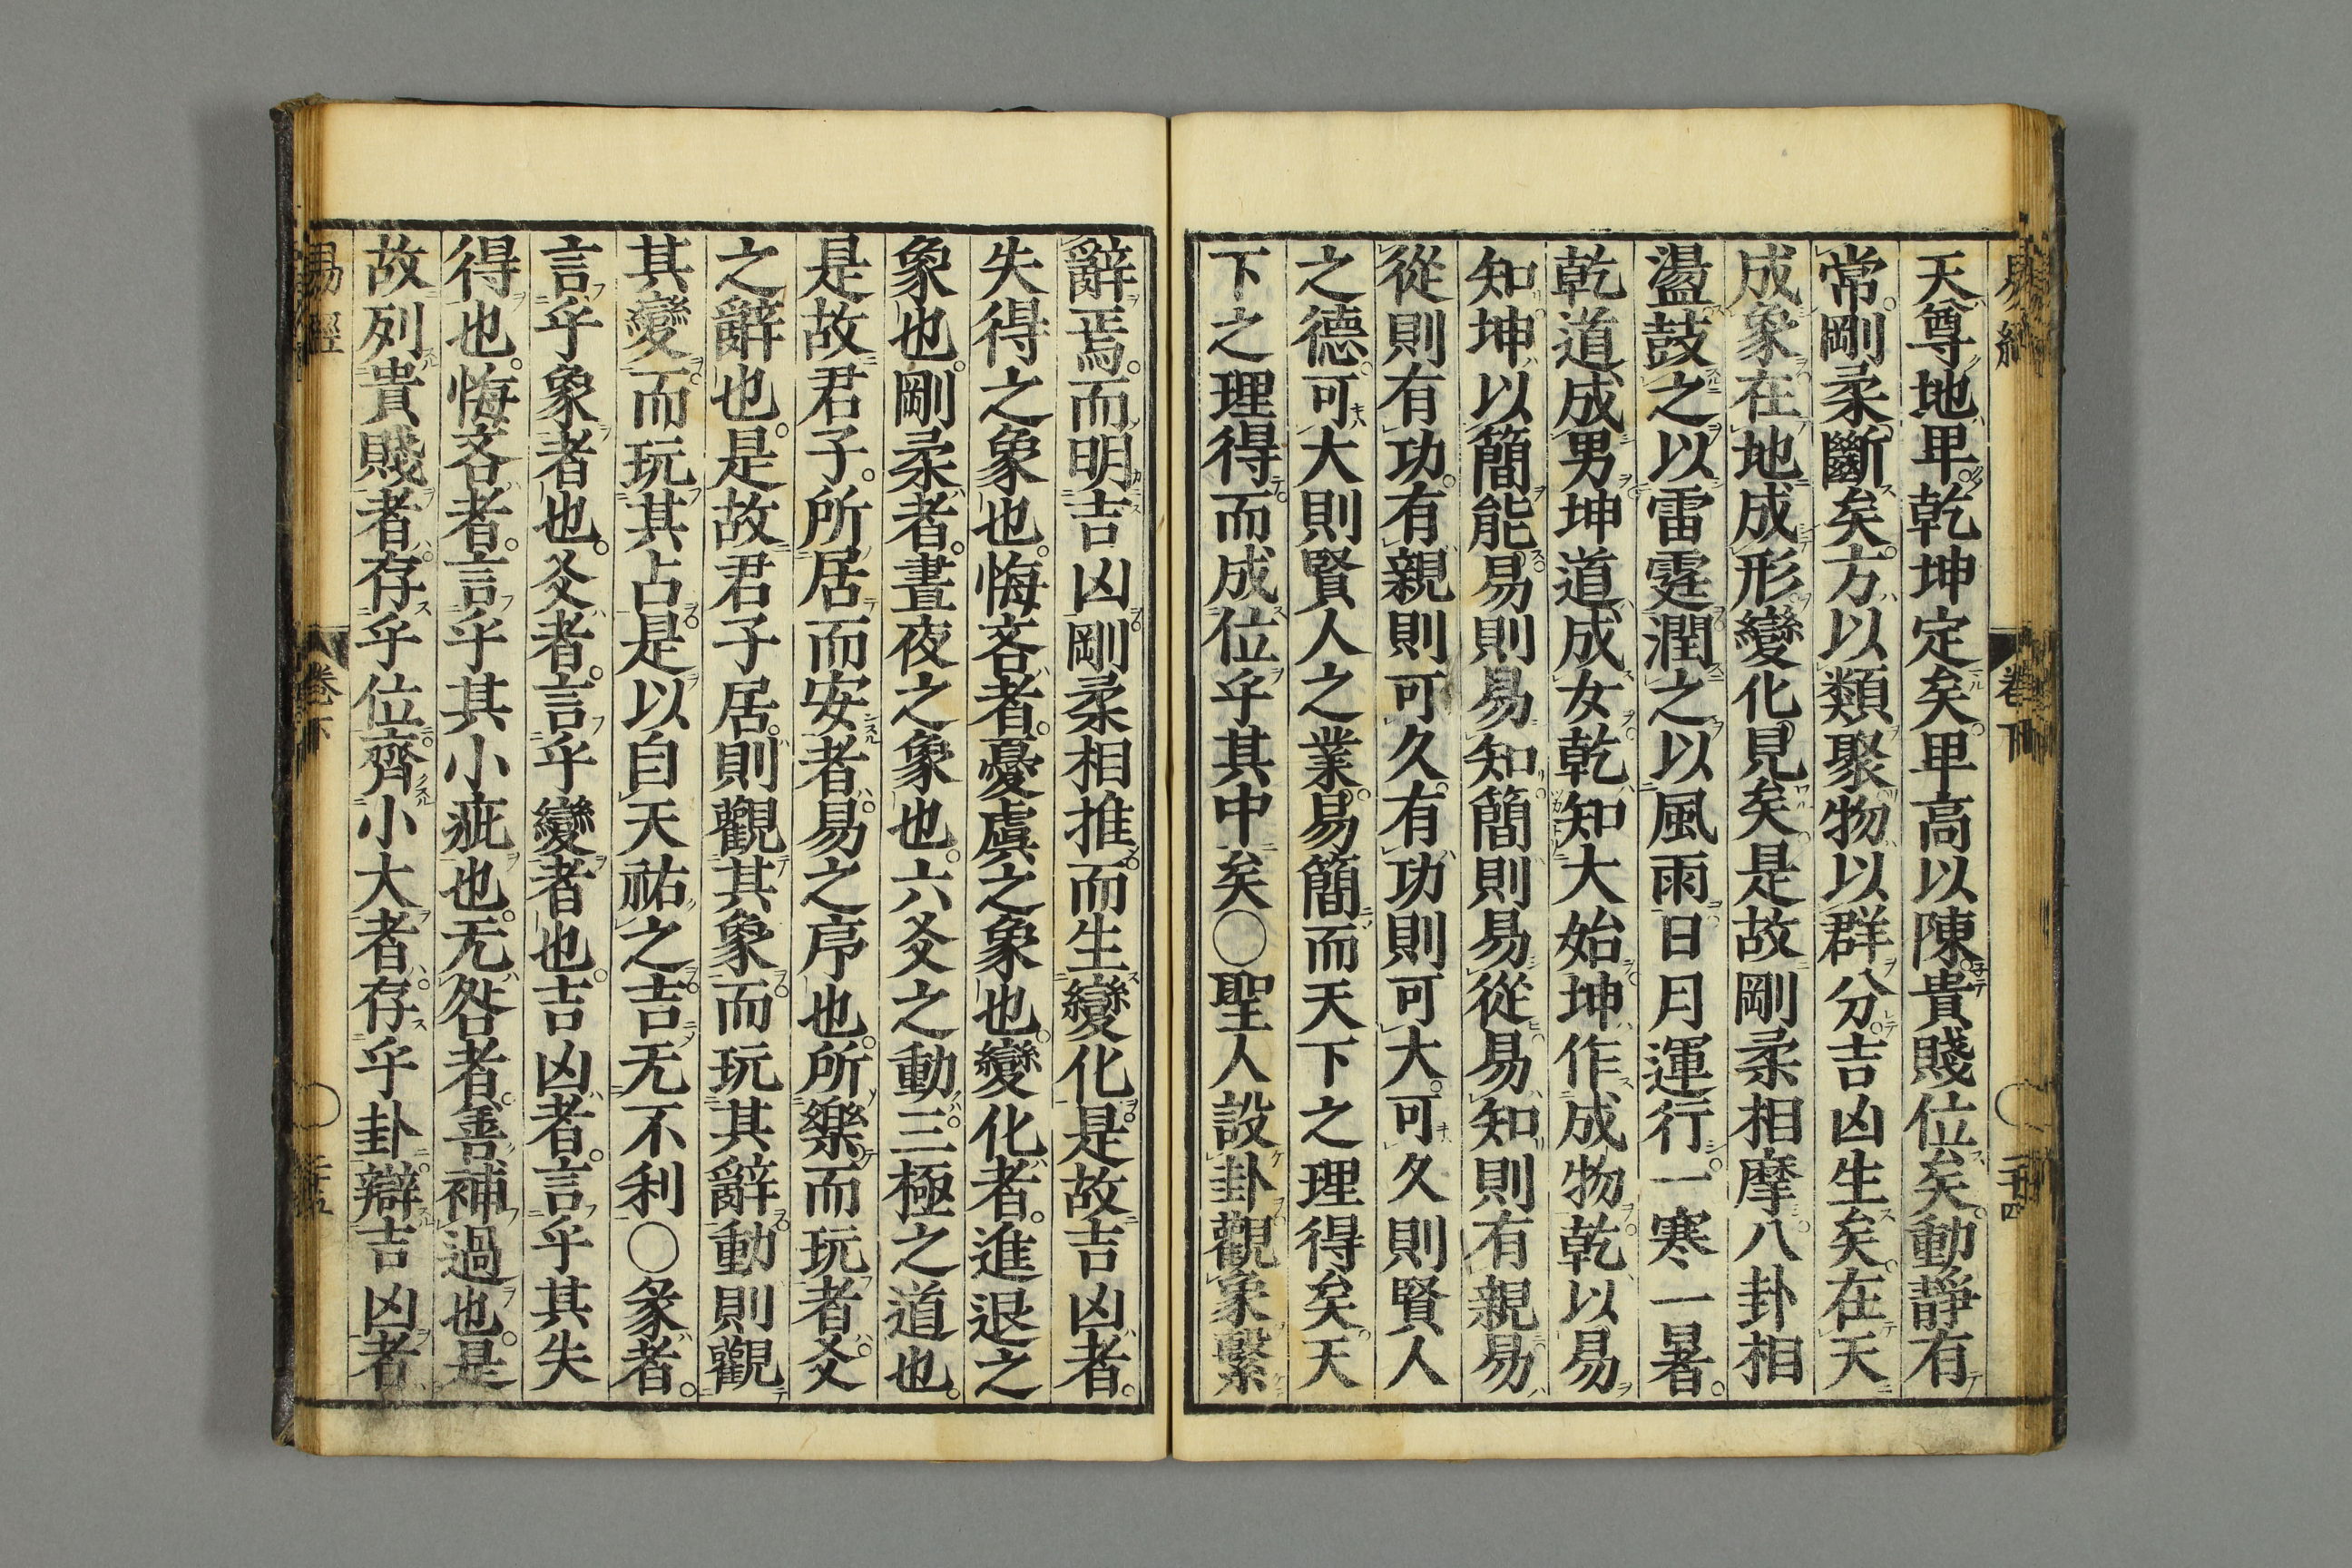 易經
卷下
二十四
天尊地卑乾坤定矣卑高以陳貴賤位矣動靜有
常剛柔斷矣方以類聚物以群分吉凶生矣在天
成象在地成形變化見矣是故剛柔相摩八卦相
盪鼓之以雷霆潤之以風雨日月運行一寒一暑
乾道成男坤道成女乾知大始坤作成物乾以易
知坤以簡能易則易知簡則易從易知則有親易
從則有功有親則可久有功則可大可久則賢人
之德可大則賢人之業易簡而天下之理得矣天
下之理得而成位乎其中矣○聖人設卦觀象繫
辭焉而明吉凶剛柔相推而生變化是故吉凶者
失得之象也悔吝者憂虞之象也變化者進退之
象也剛柔者晝夜之象也六爻之動三極之道也
是故君子所居而安者易之序也所樂而玩者爻
之辭也是故君子居則觀其象而玩其辭動則觀
其變而玩其占是以自天祐之吉无不利○彖者
言乎象者也爻者言乎變者也吉凶者言乎其失
得也悔吝者言乎其小疵也无咎者善補過也是
故列貴賤者存乎位齊小大者存乎卦辯吉凶者
易經
卷下